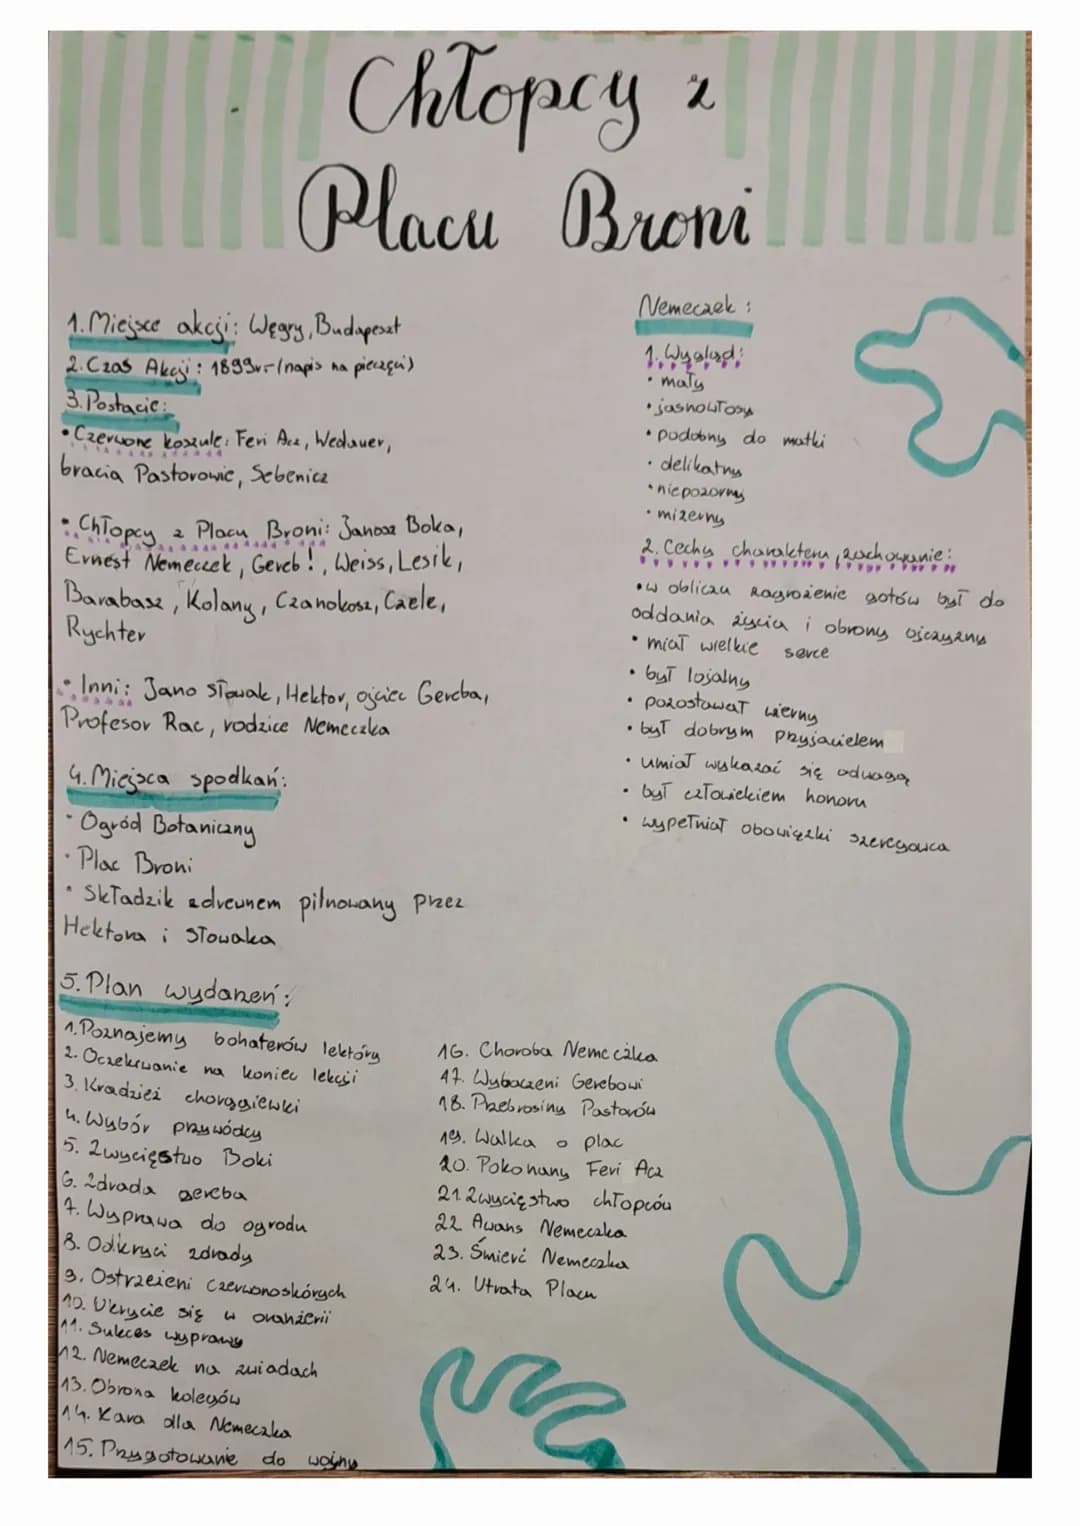 Chłopcy z
Placu Broni
1. Miejsce akcji: Węgry, Budapeszt
2. Czas Akcji: 1899r- (napis na pieczęci)
3. Postacie:
• Czerwone koszule: Feri Acz, Wedauer,
bracia Pastorowie, Sebenicz
• Chłopcy z Placu Broni: Janosz Boka,
Ernest Nemeczek, Gereb!, Weiss, Lesik,
Barabasz, Kolany, Czonakosz, Czele,
Rychter
• Inni: Jano Słowak, Hektor, ojciec Gereba,
Profesor Rac, rodzice Nemeczka
4. Miejsca spodkań:
• Ogród Botaniczny
• Plac Broni
• Składzik zdrewnem pilnowany przez
Hektora i Słowaka
5. Plan wydarzeń:
1. Poznajemy bohaterów lektóry
2. Oczekiwanie na koniec lekcji
3. Kradzież chorągiewki
4. Wybór przywódcy
5. Zwycięstwo Boki
6. Zdrada gereba
7. Wyprawa do ogrodu
8. Odkryci zdrady
9. Ostrzeżeni czerwonoskórych
10. Ukrycie się w oranżerii
11. Sukces wyprawy
12. Nemeczek na zwiadach
13. Obrona kolegów
14. Kara dla Nemeczka
15. Przygotowanie do wojny
16. Choroba Nemeczka
17. Wybaczeni Gerebowi
18. Przebrosiny Pastorów
19. Walka o plac
20. Pokonany Feri Acz
21. Zwycięstwo chłopców
22. Awans Nemeczka
23. Śmierć Nemeczka
24. Utrata Placu
Nemeczek:
1. Wygląd:
• mały
• jasnowłosy
• podobny do matki
• delikatny
• niepozorny
• mizerny
2. Cechy charakteru, zachowanie:
• w obliczu zagrożenie gotów był do
oddania życia i obrony ojczyzny
• miał wielkie serce
• był lojalny
• pozostawał wierny
• był dobrym przyjacielem
• umiał wykazać się odwagą
• był człowiekiem honoru
• wypełniał obowiązki szeregowca